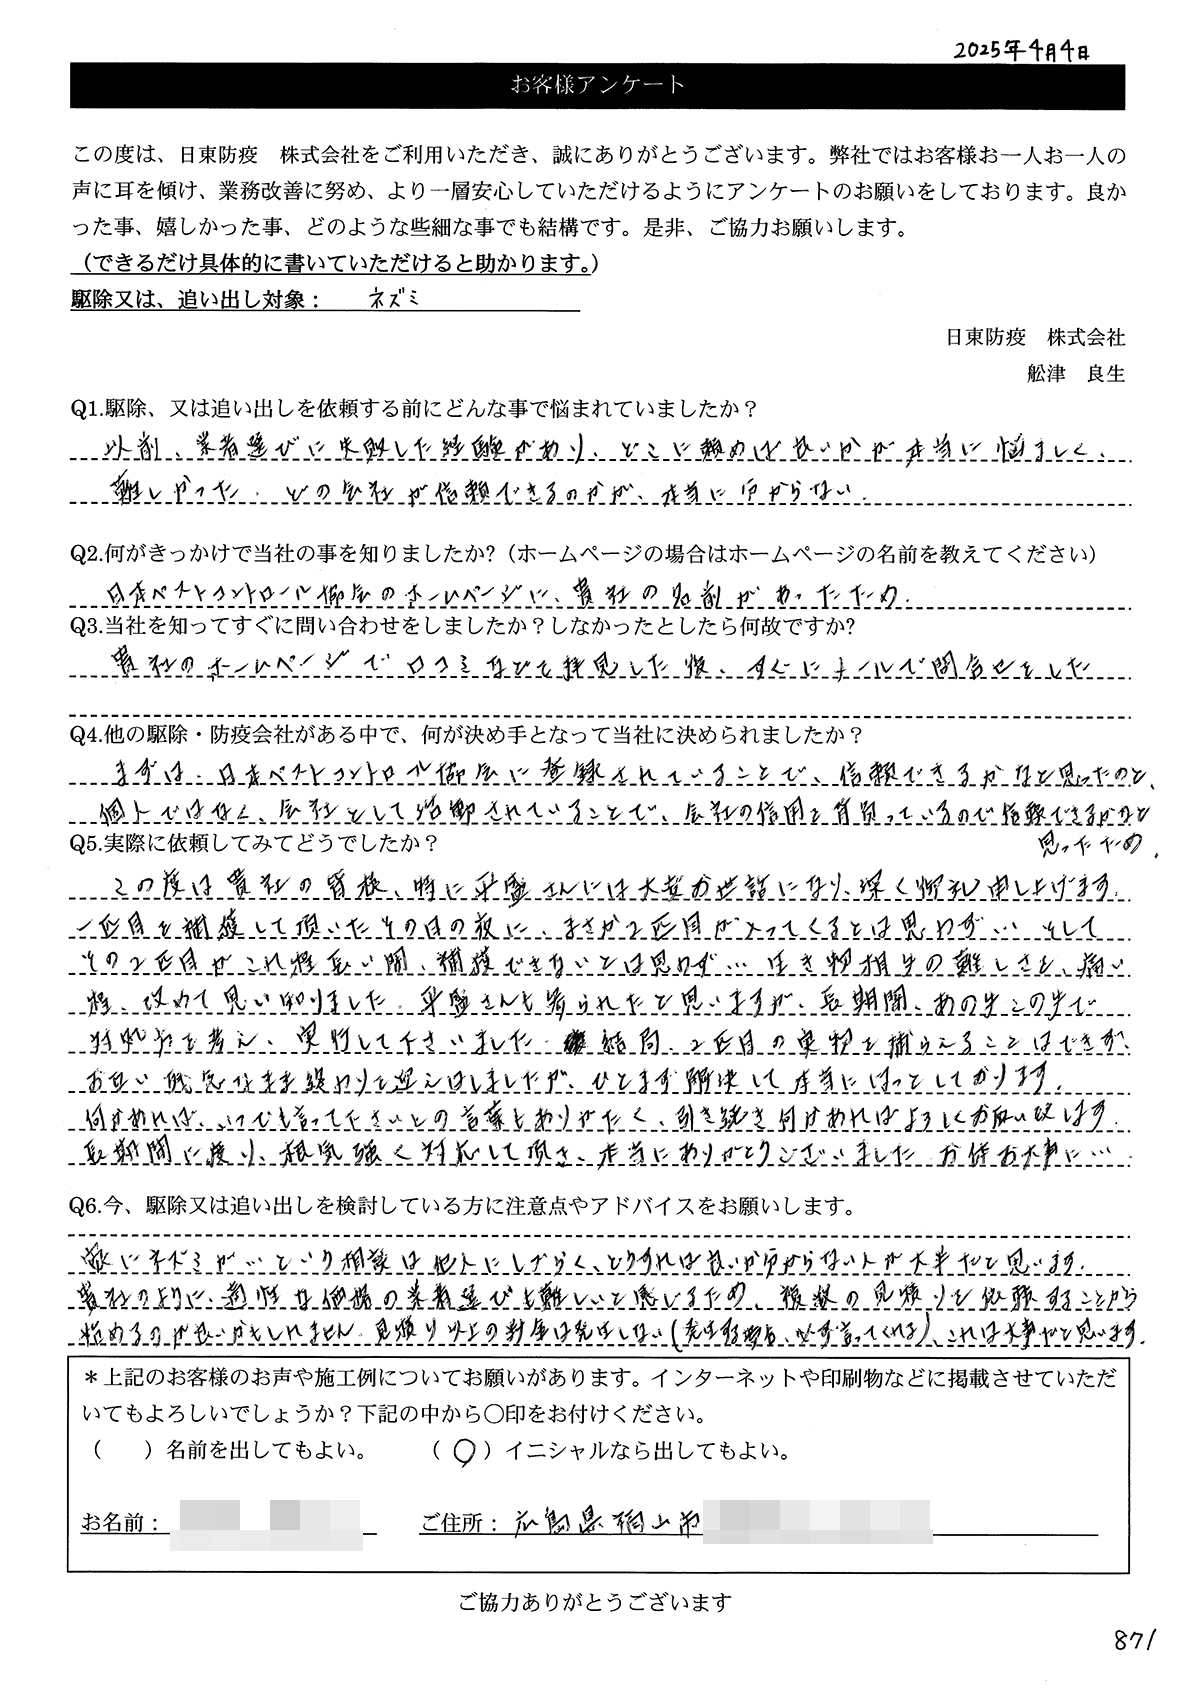 2025年4月4日
お客様アンケート
この度は、日東防疫　株式会社をご利用いただき、誠にありがとうございます。弊社ではお客様お一人お一人の
声に耳を傾け、業務改善に努め、より一層安心していただけるようにアンケートのお願いをしております。良か
った事、嬉しかった事、どのような些細な事でも結構です。是非、ご協力お願いします。
（できるだけ具体的に書いていただけると助かります。）
駆除又は、追い出し対象：　ネズミ
日東防疫　株式会社
舩津　良生
Q1.駆除、又は追い出しを依頼する前にどんな事で悩まれていましたか？
以前、業者選びに失敗した経験があり、どこに頼めば良いかが本当に悩ましく、
難しかった。どの会社が信頼できるのかが、本当に分からない。
Q2.何がきっかけで当社の事を知りましたか?（ホームページの場合はホームページの名前を教えてください）
日本ペストコントロール協会のホームページに、貴社の名前があったため。
Q3.当社を知ってすぐに問い合わせをしましたか？しなかったとしたら何故ですか?
貴社のホームページで口コミなどを拝見した後、すぐにメールで問合せをした
Q4.他の駆除・防疫会社がある中で、何が決め手となって当社に決められましたか？
まずは、日本ペストコントロール協会に登録されていることで、信頼できるかなと思ったのと、
個人ではなく、会社として活動されていることで、会社の信用を背負っているので信頼できるかなと
思ったため。
Q5.実際に依頼してみてどうでしたか？
この度は貴社の皆様、特に平盛さんには大変お世話になり、深く御礼申し上げます。
一匹目を捕獲して頂いたその日の夜に、まさか2匹目が入ってくるとは思わず… そして
その2匹目がこれ程長い間、捕獲できないとは思わず… 生き物相手の難しさを、痛い
程、改めて思い知りました。平盛さんも苦られたと思いますが、長期間、あの手この手で
対処方を考え、実行して下さいました。結局、2匹目の実物を捕らえることはできず、
お互い残念なまま終わりを迎えはしましたが、ひとまず解決して本当にほっとしております。
何かあれば、いつでも言って下さいとの言葉もありがたく、引き続き何かあればよろしくお願い致します。
長期間に渡り、根気強く対応して頂き、本当にありがとうございました。お体お大事に…
Q6.今、駆除又は追い出しを検討している方に注意点やアドバイスをお願いします。
家にネズミが… という相談は他人にしづらく、どうすれば良いか分からない人が大半だと思います。
貴社のように、適性な価格の業者選びも難しいと感じるため、複数の見積りを依頼することから
始めるのが良いかもしれません。見積り以上の料金は発生しない(発生する場合、必ず言ってくれる)、これは大事だと思います。
＊上記のお客様のお声や施工例についてお願いがあります。インターネットや印刷物などに掲載させていただ
いてもよろしいでしょうか？下記の中から〇印をお付けください。
（　　）名前を出してもよい。　（ 〇 ）イニシャルなら出してもよい。
お名前：　ご住所：　広島県福山市
ご協力ありがとうございます
871